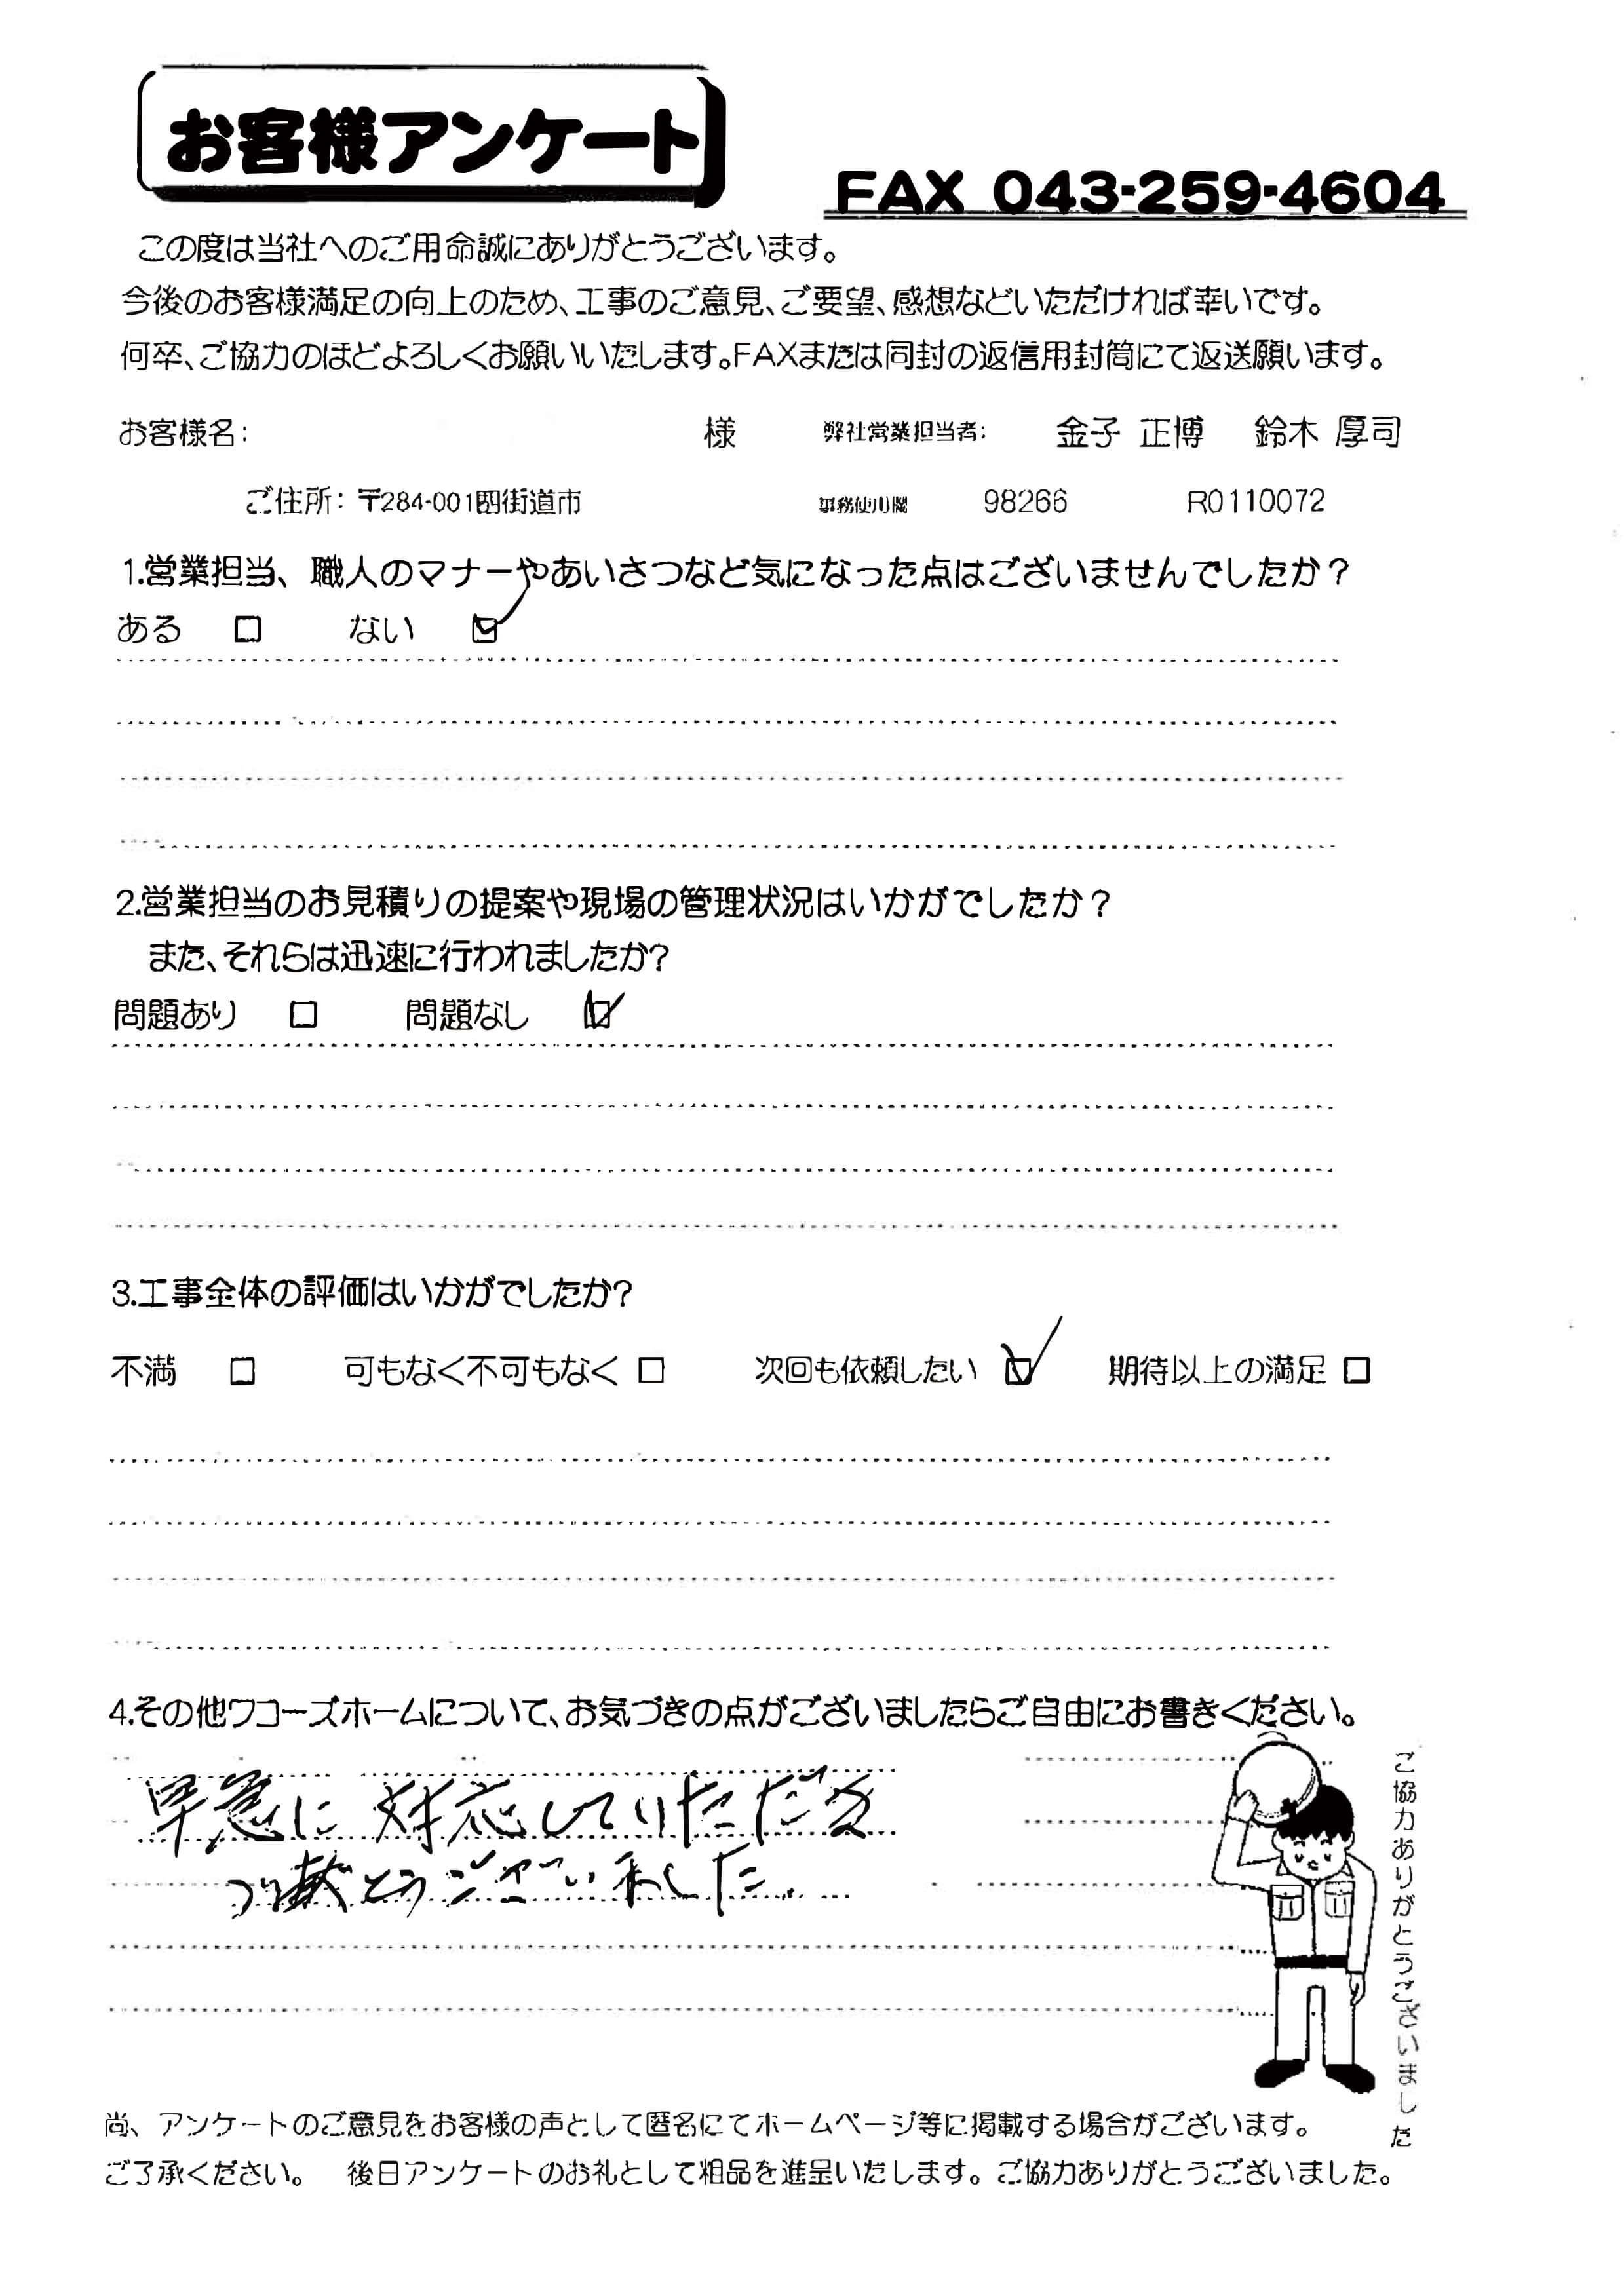 お客様アンケート
FAX 043-259-4604
この度は当社へのご用命誠にありがとうございます。
今後のお客様満足の向上のため、工事のご意見、ご要望、感想などいただければ幸いです。
何卒、ご協力のほどよろしくお願いいたします。FAXまたは同封の返信用封筒にて返送願います。
お客様名: 様 弊社営業担当者: 金子 正博 鈴木 厚司
ご住所: 〒284-001四街道市 事務使用欄 98266 R0110072
1.営業担当、職人のマナーやあいさつなど気になった点はございませんでしたか？
ある □ ない ☑
2.営業担当のお見積りの提案や現場の管理状況はいかがでしたか？
また、それらは迅速に行われましたか？
問題あり □ 問題なし ☑
3.工事全体の評価はいかがでしたか？
不満 □ 可もなく不可もなく □ 次回も依頼したい ☑ 期待以上の満足 □
4.その他ワコーズホームについて、お気づきの点がございましたらご自由にお書きください。
早急に対応していただき
とうございました。
ご協力ありがとうございました
尚、アンケートのご意見をお客様の声として匿名にてホームページ等に掲載する場合がございます。
ご了承ください。 後日アンケートのお礼として粗品を進呈いたします。ご協力ありがとうございました。